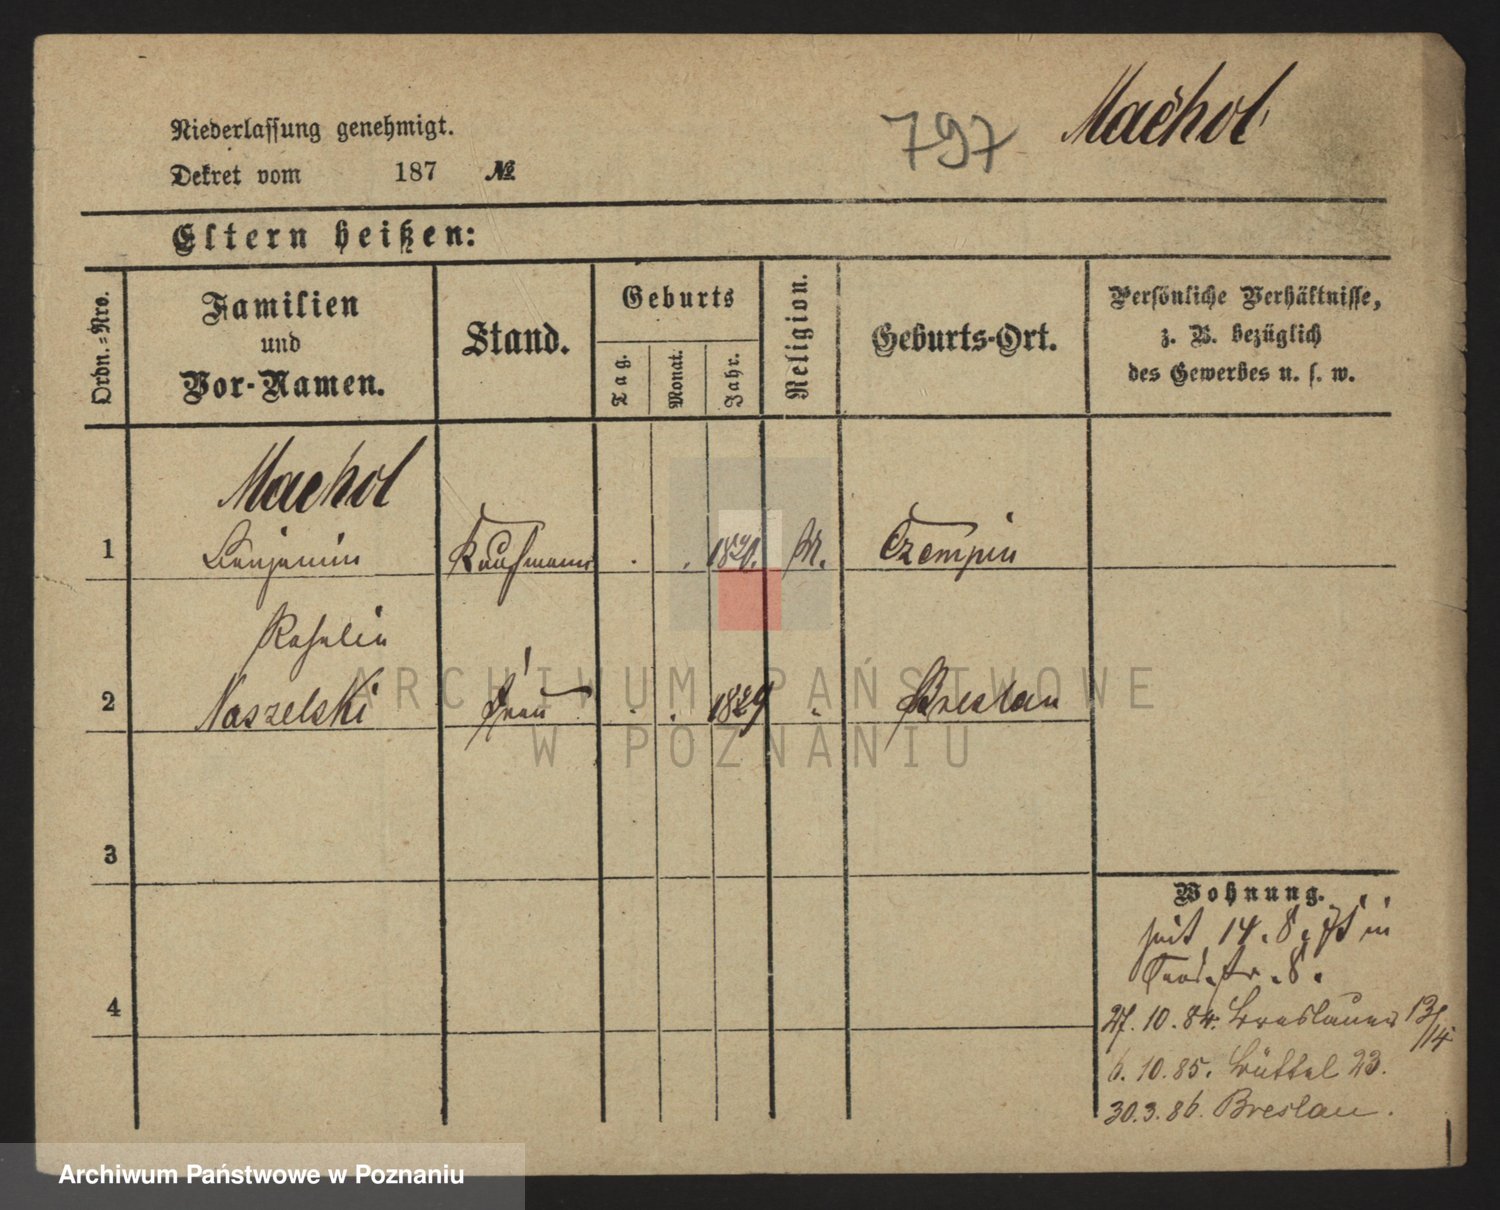 797 Machol
Niederlassung genehmigt.
Dekret vom 187 №
Eltern heißen:
Ordn.=Nro.
Familien
und
Vor-Namen.
Stand.
Geburts
Tag.
Monat.
Jahr.
Religion.
Geburts-Ort.
Persönliche Verhältnisse,
z. B. bezüglich
des Gewerbes u. s. w.
Machol
1 Benjamin Kaufmann . . 1820. M. Czempin
Rosalie
2 Naszelski Frau . . 1829 . Breslau
3
4
Wohnung.
seit 14. 8. in
8.
27. 10. 84. Breslauer 13/14
6. 10. 85. Büttel 23.
30. 3. 86. Breslau.
ARCHIWUM PAŃSTWOWE
W POZNANIU
Archiwum Państwowe w Poznaniu